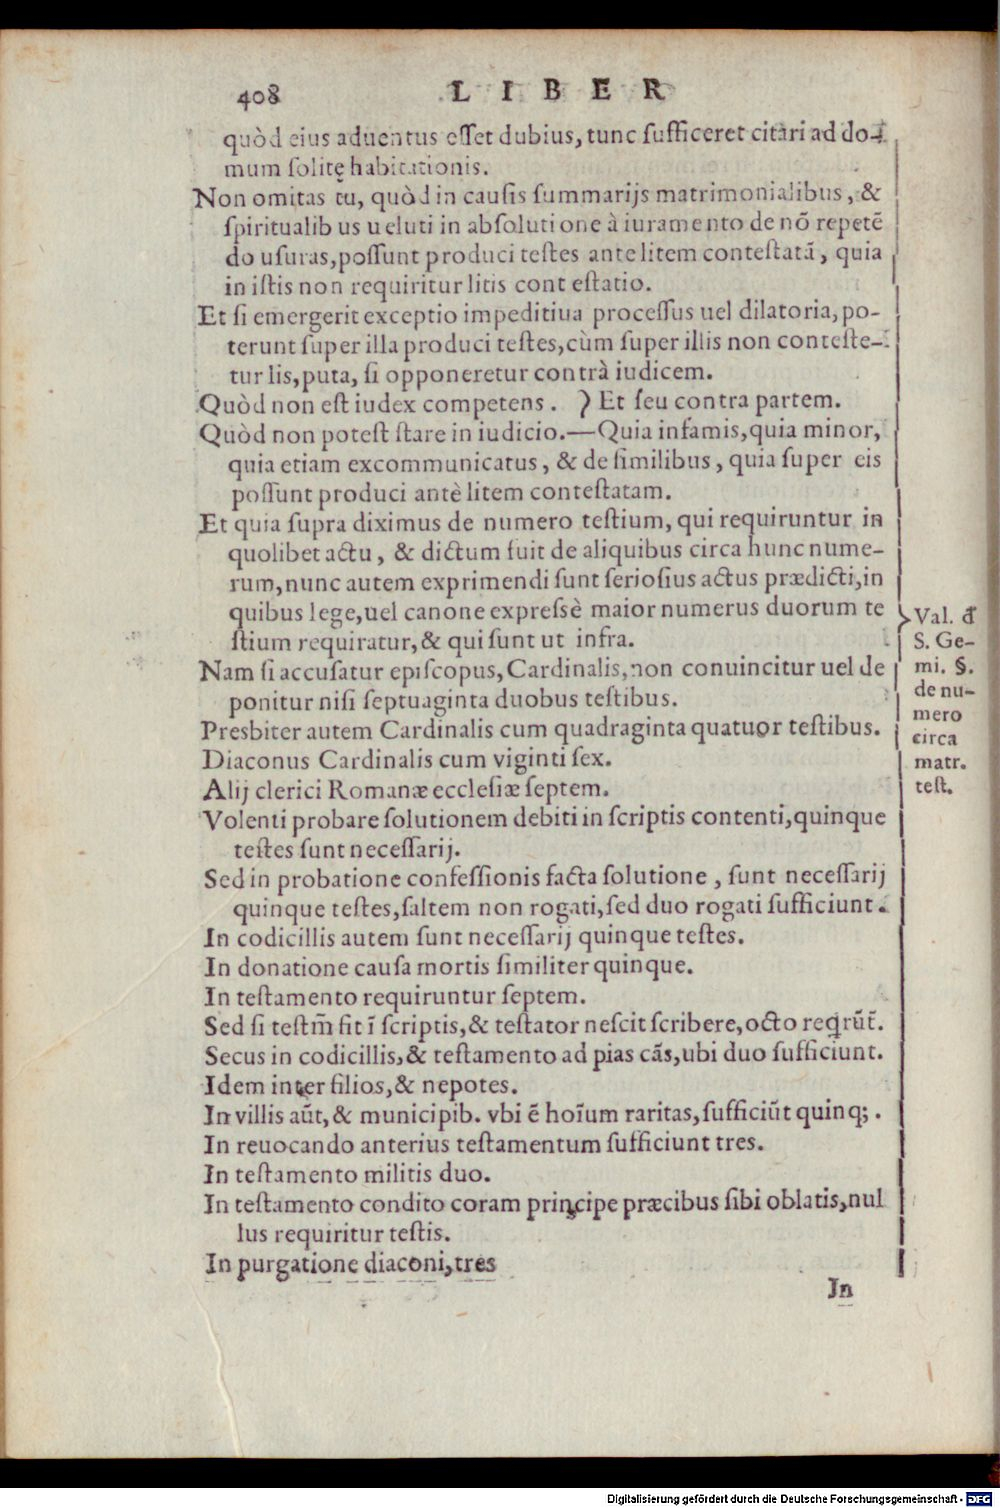 408 LIBER
quòd eius aduentus eſſet dubius, tunc ſufficeret citari ad do-
mum ſolitę habitationis.
Non omitas tu, quòd in cauſis ſummarijs matrimonialibus, &
ſpiritualibus ueluti in abſolutione à iuramento de nō repetē
do uſuras, poſſunt produci teſtes ante litem conteſtatā, quia
in iſtis non requiritur litis conteſtatio.
Et ſi emergerit exceptio impeditiua proceſſus uel dilatoria, po-
terunt ſuper illa produci teſtes, cùm ſuper illis non conteſte-
tur lis, puta, ſi opponeretur contrà iudicem.
Quòd non eſt iudex competens. ) Et ſeu contra partem.
Quòd non poteſt ſtare in iudicio.—Quia infamis, quia minor,
quia etiam excommunicatus, & de ſimilibus, quia ſuper eis
poſſunt produci antè litem conteſtatam.
Et quia ſupra diximus de numero teſtium, qui requiruntur in
quolibet actu, & dictum fuit de aliquibus circa hunc nume-
rum, nunc autem exprimendi ſunt ſerioſius actus prædicti, in
quibus lege, uel canone expreſsè maior numerus duorum te
ſtium requiratur, & qui ſunt ut infra.
Nam ſi accuſatur epiſcopus, Cardinalis, non conuincitur uel de
ponitur niſi ſeptuaginta duobus teſtibus.
Presbiter autem Cardinalis cum quadraginta quatuor teſtibus.
Diaconus Cardinalis cum viginti ſex.
Alij clerici Romanæ eccleſiæ ſeptem.
Volenti probare ſolutionem debiti in ſcriptis contenti, quinque
teſtes ſunt neceſſarij.
Sed in probatione confeſſionis facta ſolutione, ſunt neceſſarij
quinque teſtes, ſaltem non rogati, ſed duo rogati ſufficiunt.
In codicillis autem ſunt neceſſarij quinque teſtes.
In donatione cauſa mortis ſimiliter quinque.
In teſtamento requiruntur ſeptem.
Sed ſi teſtm̄ fit ī ſcriptis, & teſtator neſcit ſcribere, octo reqrūt̄.
Secus in codicillis, & teſtamento ad pias cãs, ubi duo ſufficiunt.
Idem inter filios, & nepotes.
In villis aūt, & municipib. vbi ē hoīum raritas, ſufficiūt quinq;.
In reuocando anterius teſtamentum ſufficiunt tres.
In teſtamento militis duo.
In teſtamento condito coram principe præcibus ſibi oblatis, nul
lus requiritur teſtis.
In purgatione diaconi, tres
In
Val. đ
S. Ge-
mi. §.
de nu-
mero
circa
matr.
teſt.
Digitalisierung gefördert durch die Deutsche Forschungsgemeinschaft - DFG